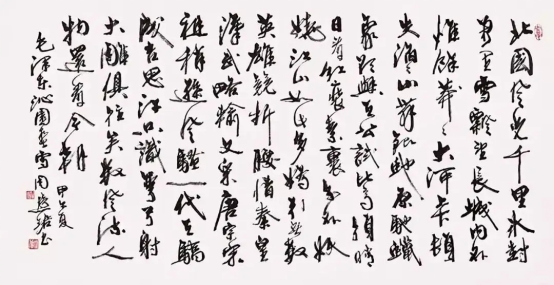 北國風光千里冰封
萬里雪飄望長城內外
惟餘莽莽大河上下頓
失滔滔山舞銀蛇原馳蠟
象欲與天公試比高須晴
日看紅裝素裹分外妖
嬈江山如此多嬌引無數
英雄競折腰惜秦皇
漢武略輸文采唐宗宋
祖稍遜風騷一代天驕
成吉思汗只識彎弓射
大雕俱往矣數風流人
物還看今朝 甲午夏
毛澤東沁園春雪 周 書